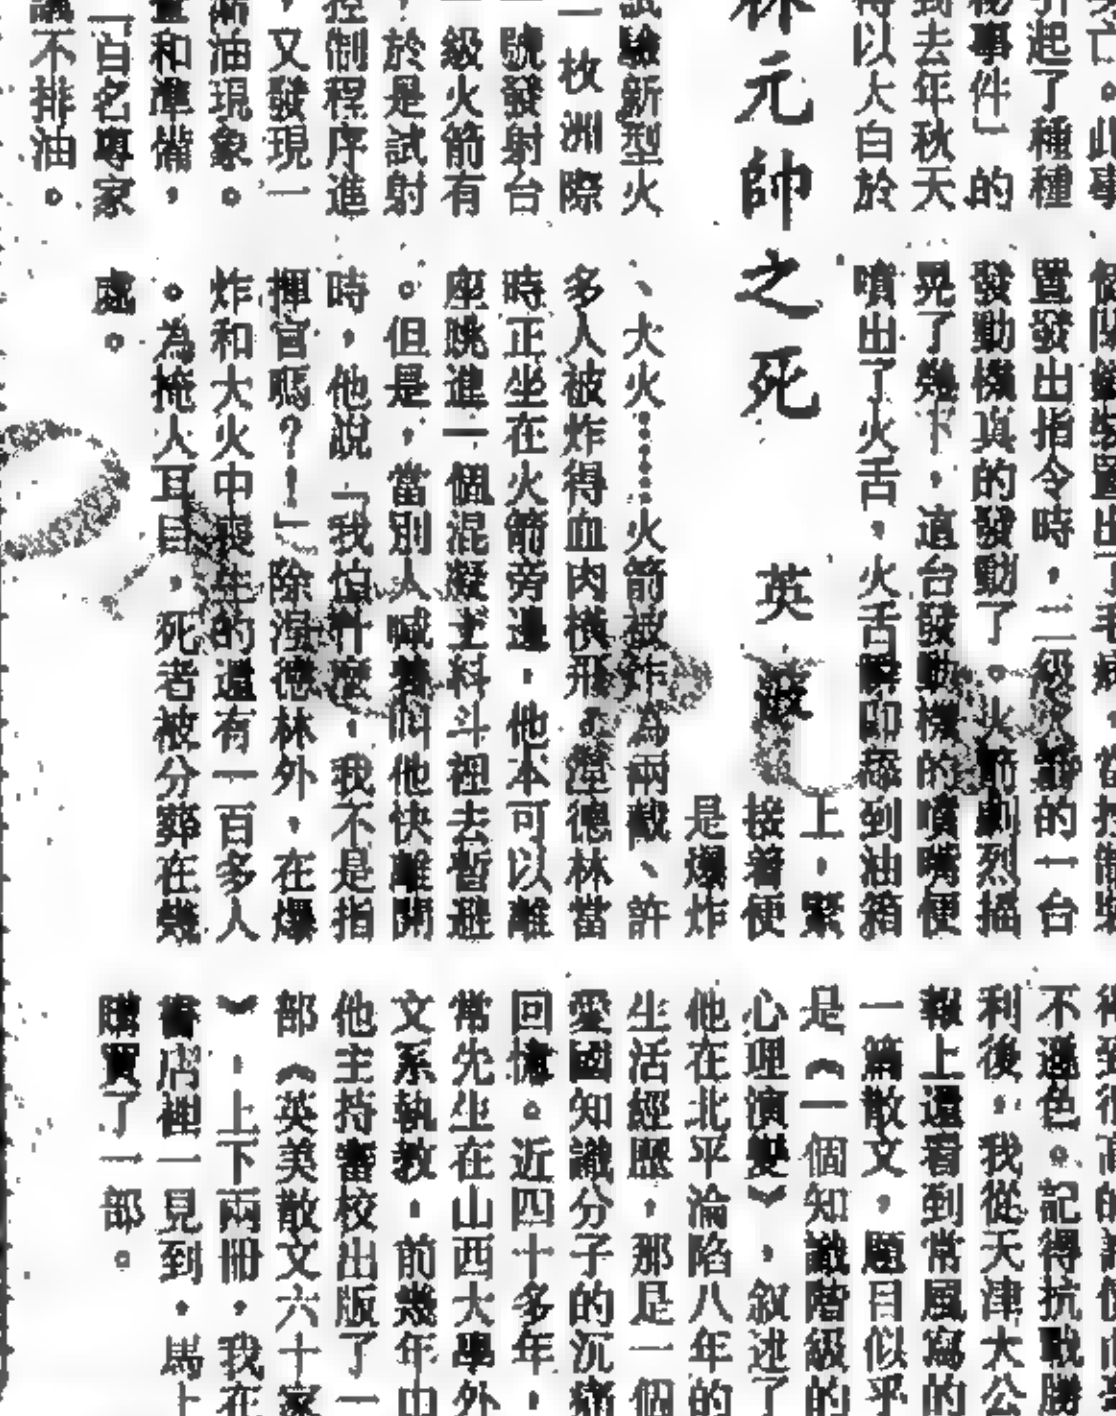 亡。此事
引起了種種
秘事件」的
到去年秋天
得以大白於
林元帥之死
英波
試驗新型火
一枚洲際
號發射台
級火箭有
，於是試射
控制程序進
，又發現一
漏油現象。
查和準備，
「百名專家
議不排油。
裝置出了毛病，當控制
置發出指令時，二級火箭的一台
發動機真的發動了。火箭劇烈搖
晃了幾下，這台發動機的噴嘴便
噴出了火舌，火舌瞬即舔到油箱
上，緊
接着便
是爆炸
、大火……火箭被炸為兩截、許
多人被炸得血肉橫飛。涅德林當
時正坐在火箭旁邊，他本可以離
座跳進一個混凝土料斗裡去暫避
。但是，當別人喊叫他快離開
時，他說「我怕什麼，我不是指
揮官嗎？！」除涅德林外，在爆
炸和大火中喪生的還有一百多人
。為掩人耳目，死者被分葬在幾
處。
得到很高的評價
不遜色。記得抗戰勝
利後，我從天津大公
報上還看到常風寫的
一篇散文，題目似乎
是《一個知識階級的
心理演變》，叙述了
他在北平淪陷八年的
生活經歷，那是一個
愛國知識分子的沉痛
回憶。近四十多年，
常先生在山西大學外
文系執教，前幾年中
他主持審校出版了一
部《英美散文六十家
》，上下兩冊，我在
書店裡一見到，馬上
購買了一部。